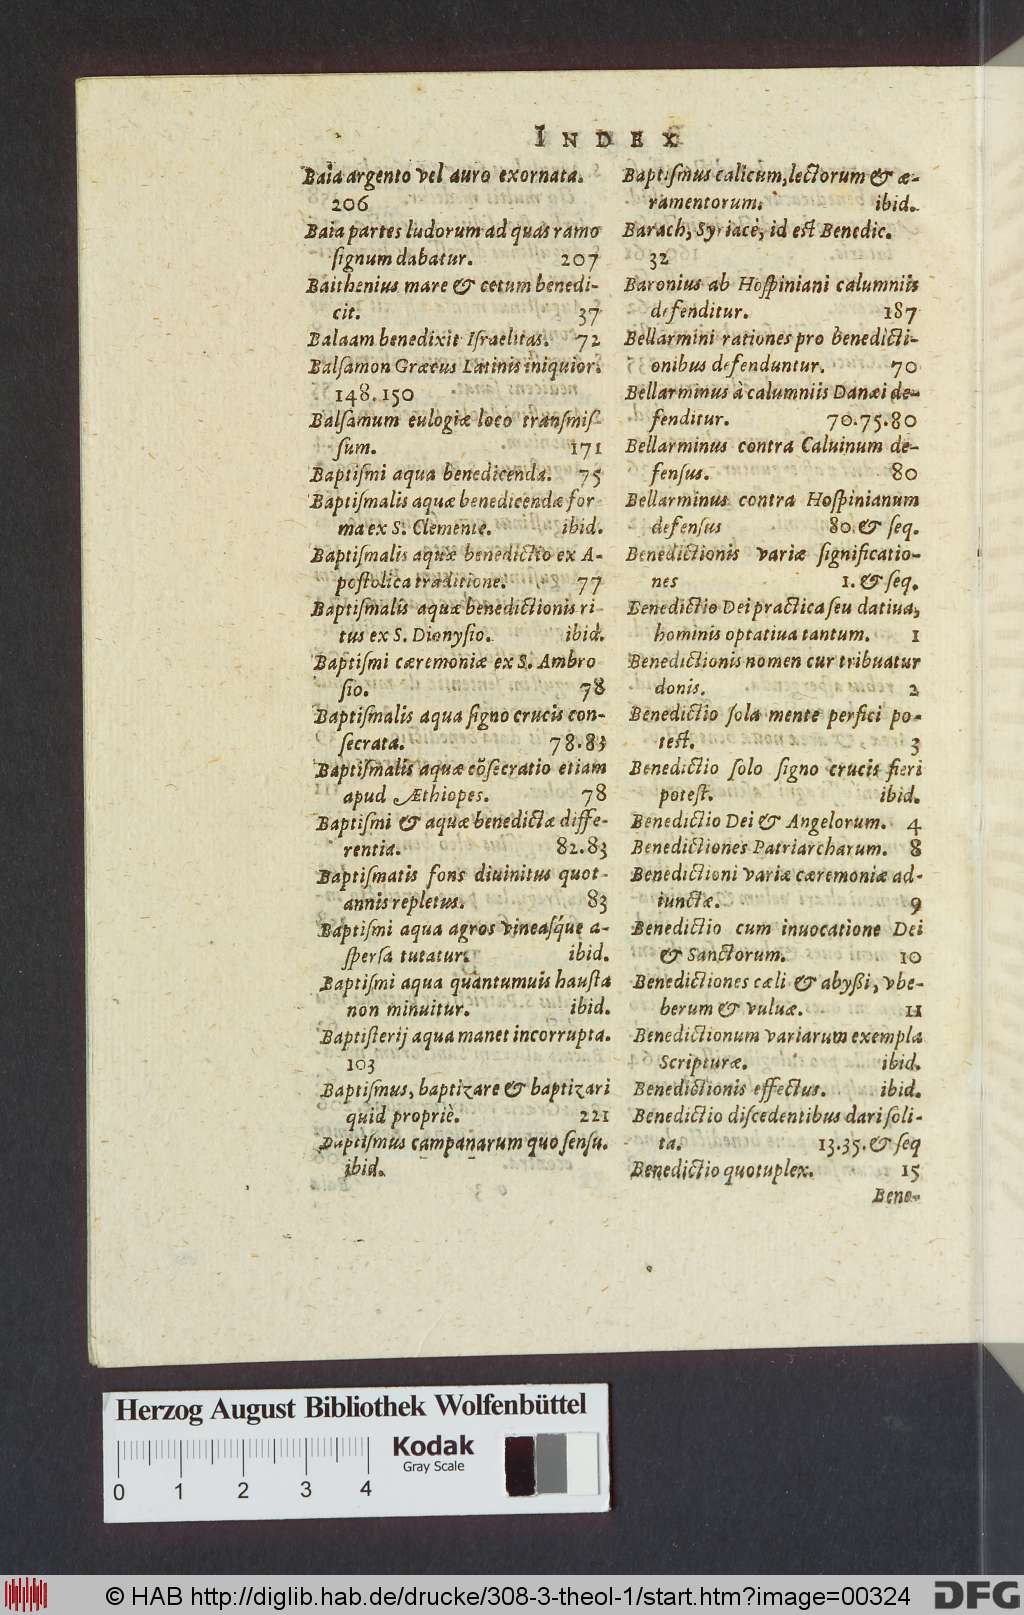 INDEX
Baia argento vel auro exornata.
206
Baia partes ludorum ad quas ramo
ſignum dabatur. 207
Baithenius mare & cetum benedi-
cit. 37
Balaam benedixit Iſraelitas. 72
Balſamon Græcus Latinis iniquior.
148. 150
Balſamum eulogiæ loco tranſmiſ-
ſum. 171
Baptiſmi aqua benedicenda. 75
Baptiſmalis aquæ benedicendæ for-
ma ex S. Clemente. ibid.
Baptiſmalis aquæ benedictio ex A-
poſtolica traditione. 77
Baptiſmalis aquæ benedictionis ri-
tus ex S. Dionyſio. ibid.
Baptiſmi cæremoniæ ex S. Ambro
ſio. 78
Baptiſmalis aqua ſigno crucis con-
ſecrata. 78.83
Baptiſmalis aquæ cõſecratio etiam
apud Æthiopes. 78
Baptiſmi & aquæ benedictæ diffe-
rentia. 82.83
Baptiſmatis fons diuinitus quot-
annis repletus. 83
Baptiſmi aqua agros vineaſq́ue a-
ſperſa tutatur. ibid.
Baptiſmi aqua quantumuis hauſta
non minuitur. ibid.
Baptiſterij aqua manet incorrupta.
103
Baptiſmus, baptizare & baptizari
quid propriè. 221
Baptiſmus campanarum quo ſenſu.
ibid.
Baptiſmus calicum, lectorum & æ-
ramentorum. ibid.
Barach, Syriacè, id eſt Benedic.
32
Baronius ab Hoſpiniani calumniis
defenditur. 187
Bellarmini rationes pro benedicti-
onibus defenduntur. 70
Bellarminus à calumniis Danæi de-
fenditur. 70.75.80
Bellarminus contra Caluinum de-
fenſus. 80
Bellarminus contra Hoſpinianum
defenſus 80. & ſeq.
Benedictionis variæ ſignificatio-
nes 1. & ſeq.
Benedictio Dei practica ſeu datiua,
hominis optatiua tantum. 1
Benedictionis nomen cur tribuatur
donis. 2
Benedictio ſola mente perfici po-
teſt. 3
Benedictio ſolo ſigno crucis fieri
poteſt. ibid.
Benedictio Dei & Angelorum. 4
Benedictiones Patriarcharum. 8
Benedictioni variæ cæremoniæ ad-
iunctæ. 9
Benedictio cum inuocatione Dei
& Sanctorum. 10
Benedictiones cæli & abyßi, vbe-
berum & vuluæ. 11
Benedictionum variarum exempla
Scripturæ. ibid.
Benedictionis effectus. ibid.
Benedictio diſcedentibus dari ſoli-
ta. 13.35. & ſeq
Benedictio quotuplex. 15
Bene-
Herzog August Bibliothek Wolfenbüttel
Kodak
Gray Scale
0 1 2 3 4
© HAB http://diglib.hab.de/drucke/308-3-theol-1/start.htm?image=00324
DFG